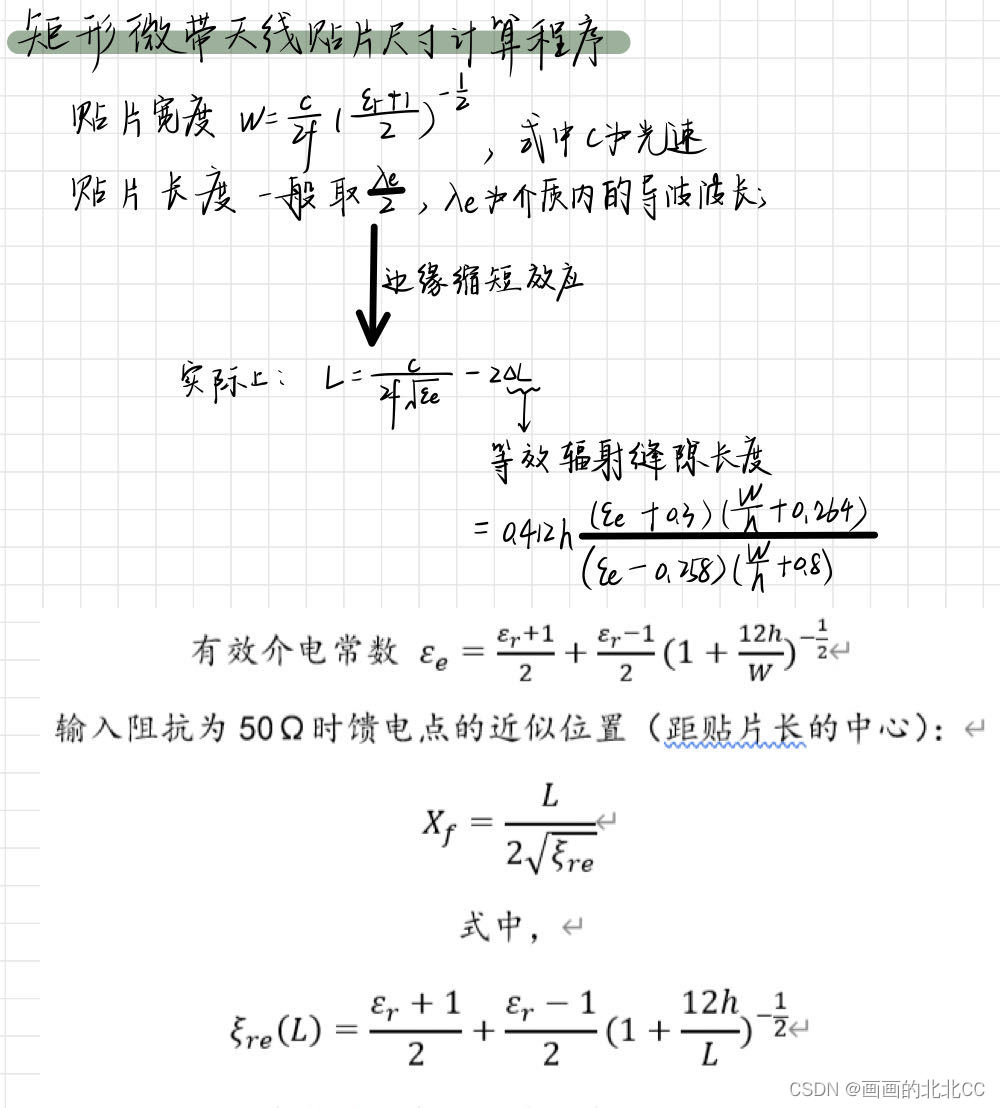 矩形微带天线贴片尺寸计算程序
贴片宽度 W = \frac{c}{2f} (\frac{ε_r+1}{2})^{-\frac{1}{2}} , 式中c为光速
贴片长度 一般取 \frac{λe}{2} , λe为介质内的导波波长;
边缘缩短效应
实际上: L = \frac{c}{2f\sqrt{εe}} - 2ΔL
等效辐射缝隙长度
= 0.412h \frac{(εe + 0.3)(\frac{W}{h} + 0.264)}{(εe - 0.258)(\frac{W}{h} + 0.8)}
有效介电常数 ε_e = \frac{ε_r+1}{2} + \frac{ε_r-1}{2} (1 + \frac{12h}{W})^{-\frac{1}{2}}↵
输入阻抗为 50Ω时馈电点的近似位置（距贴片长的中心）：↵
X_f = \frac{L}{2\sqrt{ξ_{re}}}↵
式中，↵
ξ_{re}(L) = \frac{ε_r + 1}{2} + \frac{ε_r - 1}{2} (1 + \frac{12h}{L})^{-\frac{1}{2}}↵
CSDN @画画的北北CC